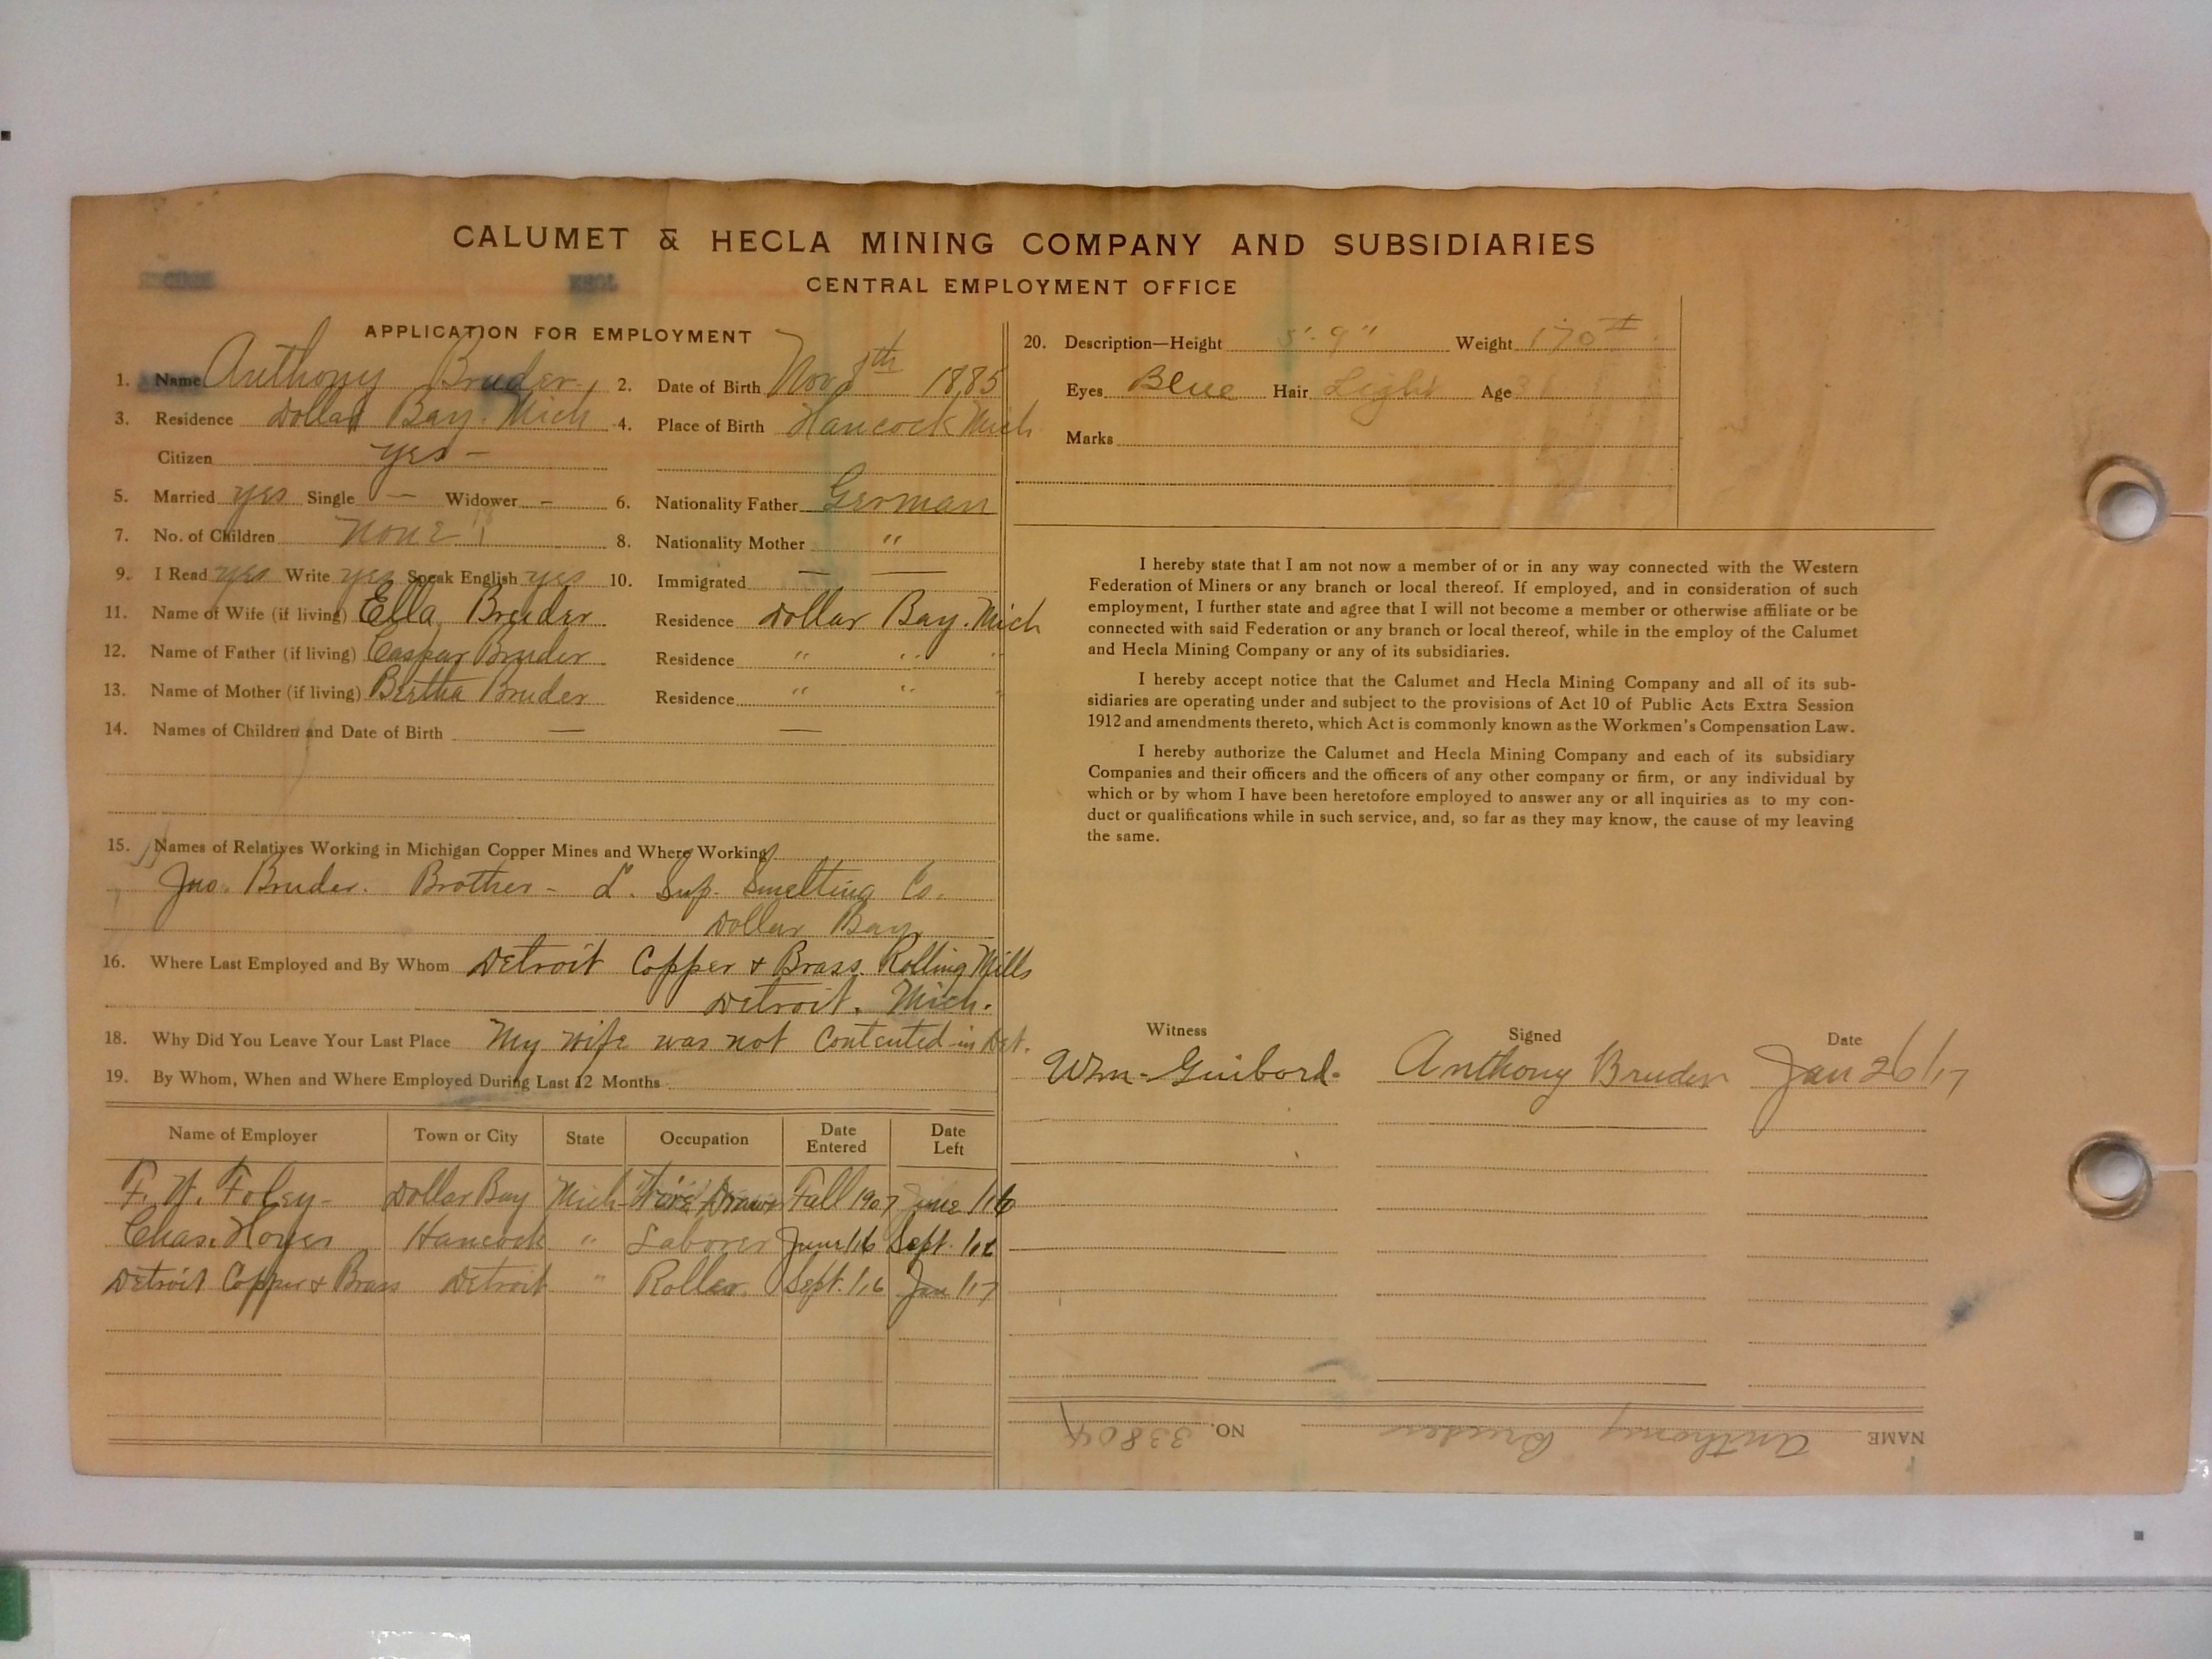 CALUMET & HECLA MINING COMPANY AND SUBSIDIARIES
CENTRAL EMPLOYMENT OFFICE
APPLICATION FOR EMPLOYMENT
1. Name Anthony Bruder. 2. Date of Birth Nov 8th 1885
3. Residence Dollar Bay. Mich 4. Place of Birth Hancock Mich
Citizen yes –
5. Married yes Single — Widower – 6. Nationality Father German
7. No. of Children None 8. Nationality Mother "
9. I Read yes Write yes Speak English yes 10. Immigrated — —
11. Name of Wife (if living) Ella Bruder. Residence Dollar Bay. Mich
12. Name of Father (if living) Caspar Bruder Residence " " "
13. Name of Mother (if living) Bertha Bruder Residence " " "
14. Names of Children and Date of Birth — —
15. Names of Relatives Working in Michigan Copper Mines and Where Working
Jno. Bruder. Brother – L. Sup. Smelting Co.
Dollar Bay
16. Where Last Employed and By Whom Detroit Copper & Brass Rolling Mills
Detroit. Mich.
18. Why Did You Leave Your Last Place My wife was not Contented in Det.
19. By Whom, When and Where Employed During Last 12 Months
Name of Employer Town or City State Occupation Date Entered Date Left
F. W. Foley – Dollar Bay Mich – Wire Drawer Fall 1907 June 1/16
Chas. Hoyer Hancock " Laborer June 1/16 Sept. 1/16
Detroit Copper & Brass Detroit " Roller Sept. 1/16 Jan 1/17
20. Description—Height 5'-9" Weight 170 #
Eyes Blue Hair Light Age 31
Marks
I hereby state that I am not now a member of or in any way connected with the Western
Federation of Miners or any branch or local thereof. If employed, and in consideration of such
employment, I further state and agree that I will not become a member or otherwise affiliate or be
connected with said Federation or any branch or local thereof, while in the employ of the Calumet
and Hecla Mining Company or any of its subsidiaries.
I hereby accept notice that the Calumet and Hecla Mining Company and all of its sub-
sidiaries are operating under and subject to the provisions of Act 10 of Public Acts Extra Session
1912 and amendments thereto, which Act is commonly known as the Workmen's Compensation Law.
I hereby authorize the Calumet and Hecla Mining Company and each of its subsidiary
Companies and their officers and the officers of any other company or firm, or any individual by
which or by whom I have been heretofore employed to answer any or all inquiries as to my con-
duct or qualifications while in such service, and, so far as they may know, the cause of my leaving
the same.
Witness Signed Date
Wm. Guibord. Anthony Bruder Jan 26/17
NAME Anthony Bruder NO. 33804